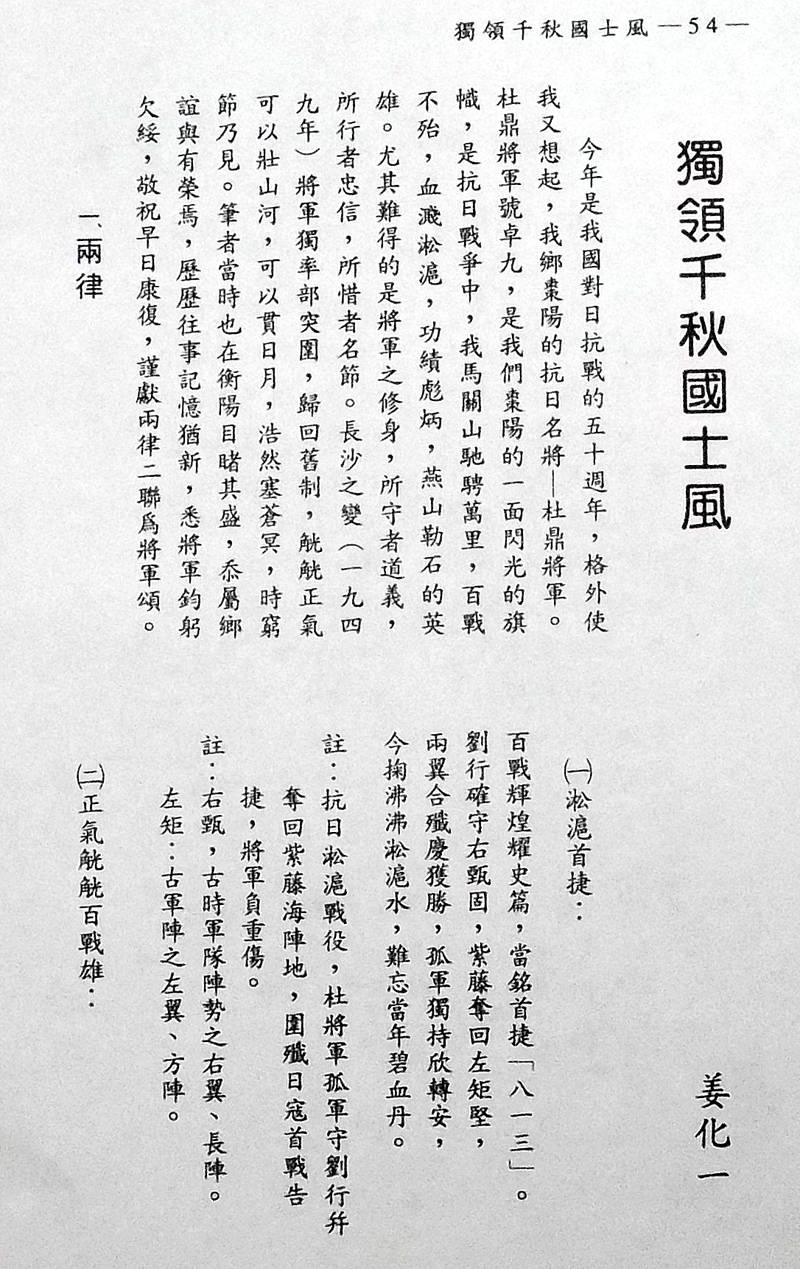 獨領千秋國士風 —54—
獨領千秋國士風
姜化一
今年是我國對日抗戰的五十週年，格外使
我又想起，我鄉棗陽的抗日名將—杜鼎將軍。
杜鼎將軍號卓九，是我們棗陽的一面閃光的旗
幟，是抗日戰爭中，我馬關山馳騁萬里，百戰
不殆，血濺淞滬，功績彪炳，燕山勒石的英
雄。尤其難得的是將軍之修身，所守者道義，
所行者忠信，所惜者名節。長沙之變（一九四
九年）將軍獨率部突圍，歸回舊制，觥觥正氣
可以壯山河，可以貫日月，浩然塞蒼冥，時窮
節乃見。筆者當時也在衡陽目睹其盛，忝屬鄉
誼與有榮焉，歷歷往事記憶猶新，悉將軍鈞躬
欠綏，敬祝早日康復，謹獻兩律二聯爲將軍頌。
一、兩律
㈠淞滬首捷：
百戰輝煌耀史篇，當銘首捷「八一三」。
劉行確守右甄固，紫藤奪回左矩堅，
兩翼合殲慶獲勝，孤軍獨持欣轉安，
今掬沸沸淞滬水，難忘當年碧血丹。
註：抗日淞滬戰役，杜將軍孤軍守劉行幷
奪回紫藤海陣地，圍殲日寇首戰告
捷，將軍負重傷。
註：右甄，古時軍隊陣勢之右翼、長陣。
左矩：古軍陣之左翼、方陣。
㈡正氣觥觥百戰雄：